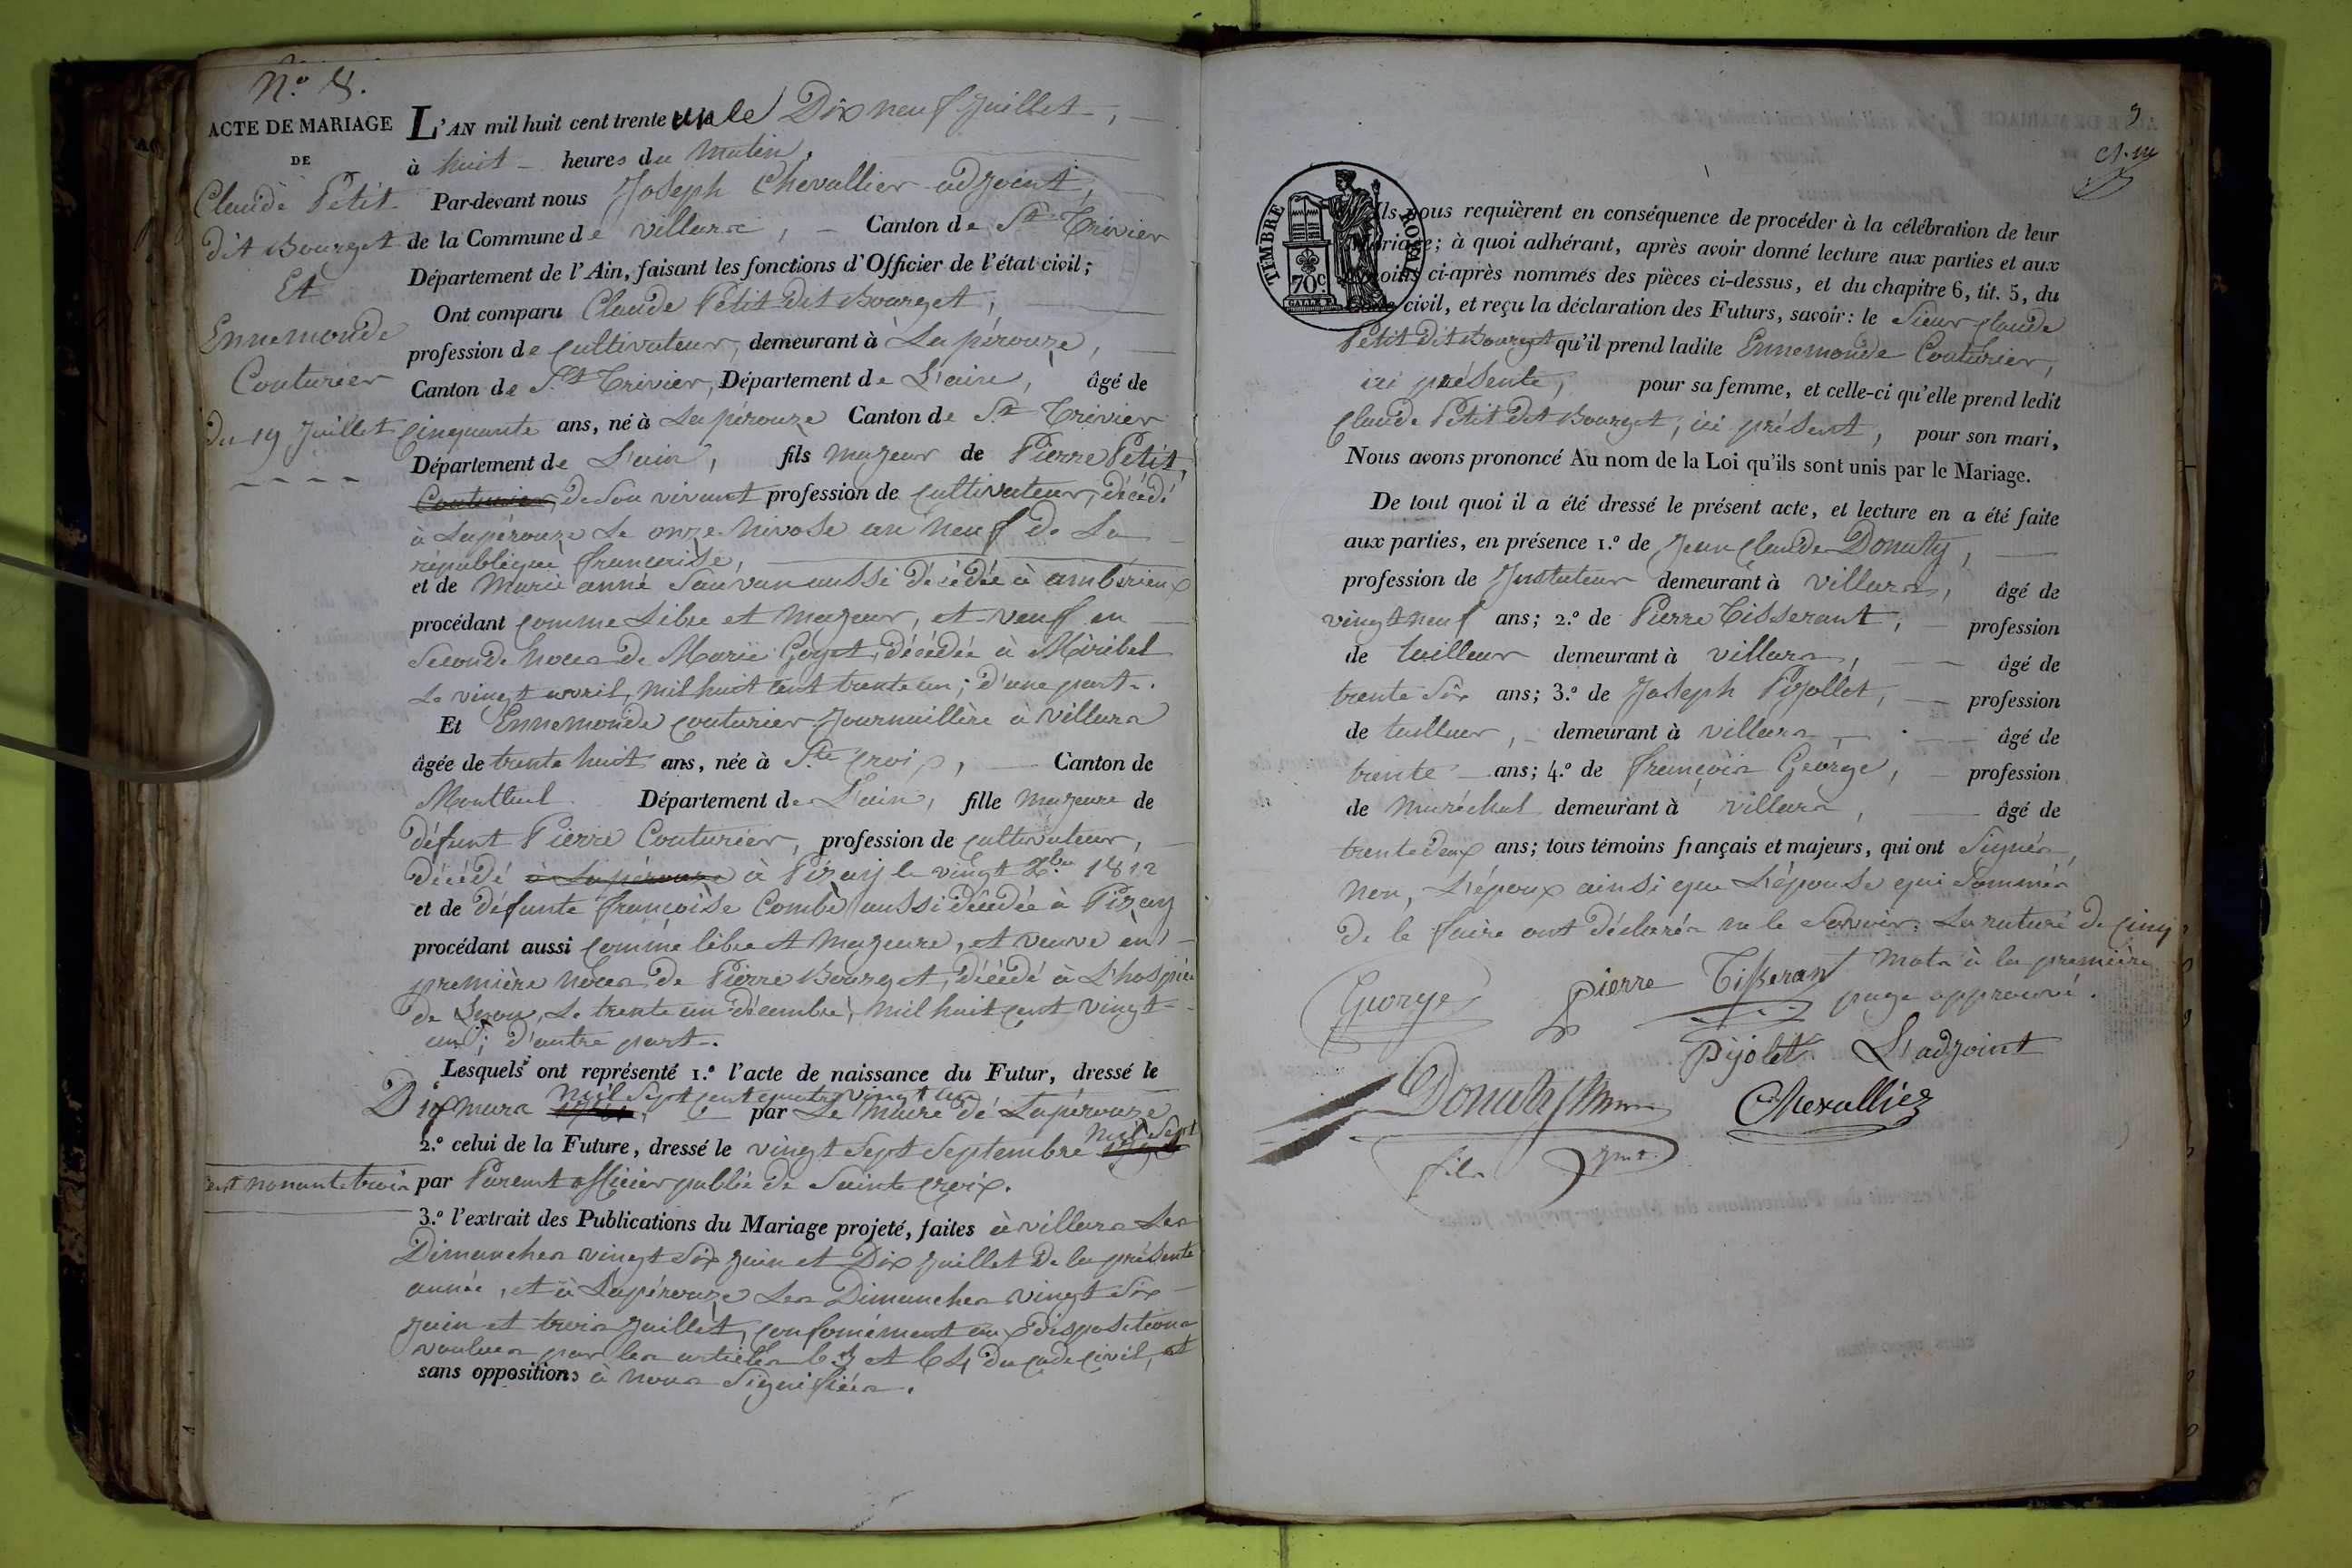 N.º 8.
ACTE DE MARIAGE
DE
Claude Petit
dit Bourget
Et
Ennemonde
Couturier
du 19 Juillet
L'AN mil huit cent trente un le Dix neuf Juillet,
à huit heures du matin.
Par-devant nous Joseph Chevallier adjoint,
de la Commune de Villars, Canton de St. Trivier
Département de l'Ain, faisant les fonctions d'Officier de l'état civil;
Ont comparu Claude Petit dit Bourget,
profession de cultivateur, demeurant à Lapérouze,
Canton de St. Trivier, Département de L'ain, âgé de
Cinquante ans, né à Lapérouze Canton de St. Trivier
Département de L'ain, fils majeur de Pierre Petit,
Couturier, de son vivant profession de cultivateur, décédé
à Lapérouze Le onze nivose an neuf de La
république française,
et de Marie anne Sauvan aussi décédée à ambérieux
procédant comme Libre et majeur, et veuf en
seconde noces de Marie Goyet, décédée à Miribel
Le vingt avril, mil huit cent trente un; d'une part.
Et Ennemonde Couturier Journaillère à Villars
âgée de trente huit ans, née à Ste. Croix, Canton de
Montluel Département de L'ain, fille majeure de
défunt Pierre Couturier, profession de cultivateur,
décédé à Lapérouze à Pizay le vingt Xbre 1812
et de défunte françoise Combe aussi décédée à Pizay
procédant aussi comme libre et majeure, et veuve en
première noces de Pierre Bourget, décédé à L'hospice
de Lyon, Le trente un décembre, mil huit cent vingt-
un; d'autre part.
Lesquels ont représenté 1.º l'acte de naissance du Futur, dressé le
mil sept cent quatre vingt un
19 mars par Le Maire de Lapérouze
2.º celui de la Future, dressé le vingt sept Septembre mil sept
cent nonante trois par Parent officier public de Sainte Croix.
3.º l'extrait des Publications du Mariage projeté, faites à Villars Les
Dimanches vingt six juin et Dix juillet de la présente
année, et à Lapérouze Les Dimanches vingt six
juin et trois juillet, conformément aux dispositions
voulues par les articles 63 et 64 du code civil, et
sans oppositions à nous signifiées.
3
TIMBRE ROYAL
70 C.
Ils nous requièrent en conséquence de procéder à la célébration de leur
Mariage; à quoi adhérant, après avoir donné lecture aux parties et aux
témoins ci-après nommés des pièces ci-dessus, et du chapitre 6, tit. 5, du
Code civil, et reçu la déclaration des Futurs, savoir: le Sieur Claude
Petit dit Bourget qu'il prend ladite Ennemonde Couturier,
ici présente, pour sa femme, et celle-ci qu'elle prend ledit
Claude Petit dit Bourget, ici présent, pour son mari,
Nous avons prononcé Au nom de la Loi qu'ils sont unis par le Mariage.
De tout quoi il a été dressé le présent acte, et lecture en a été faite
aux parties, en présence 1.º de Jean Claude Donuty,
profession de Justuteur demeurant à Villars, âgé de
vingt neuf ans; 2.º de Pierre Tisserant, profession
de tailleur demeurant à Villars, âgé de
trente six ans; 3.º de Joseph Pijollet, profession
de tailleur, demeurant à Villars, âgé de
trente ans; 4.º de françois George, profession
de maréchal demeurant à Villars, âgé de
trente deux ans; tous témoins français et majeurs, qui ont Signés,
non, L'époux ainsi que L'épouse qui sommés
de le faire ont déclarés ne le Savoir. La rature de cinq
mots à la première
page approuvé.
George
Pierre Tisserant
Pijolet
L'adjoint
Chevallier
fils